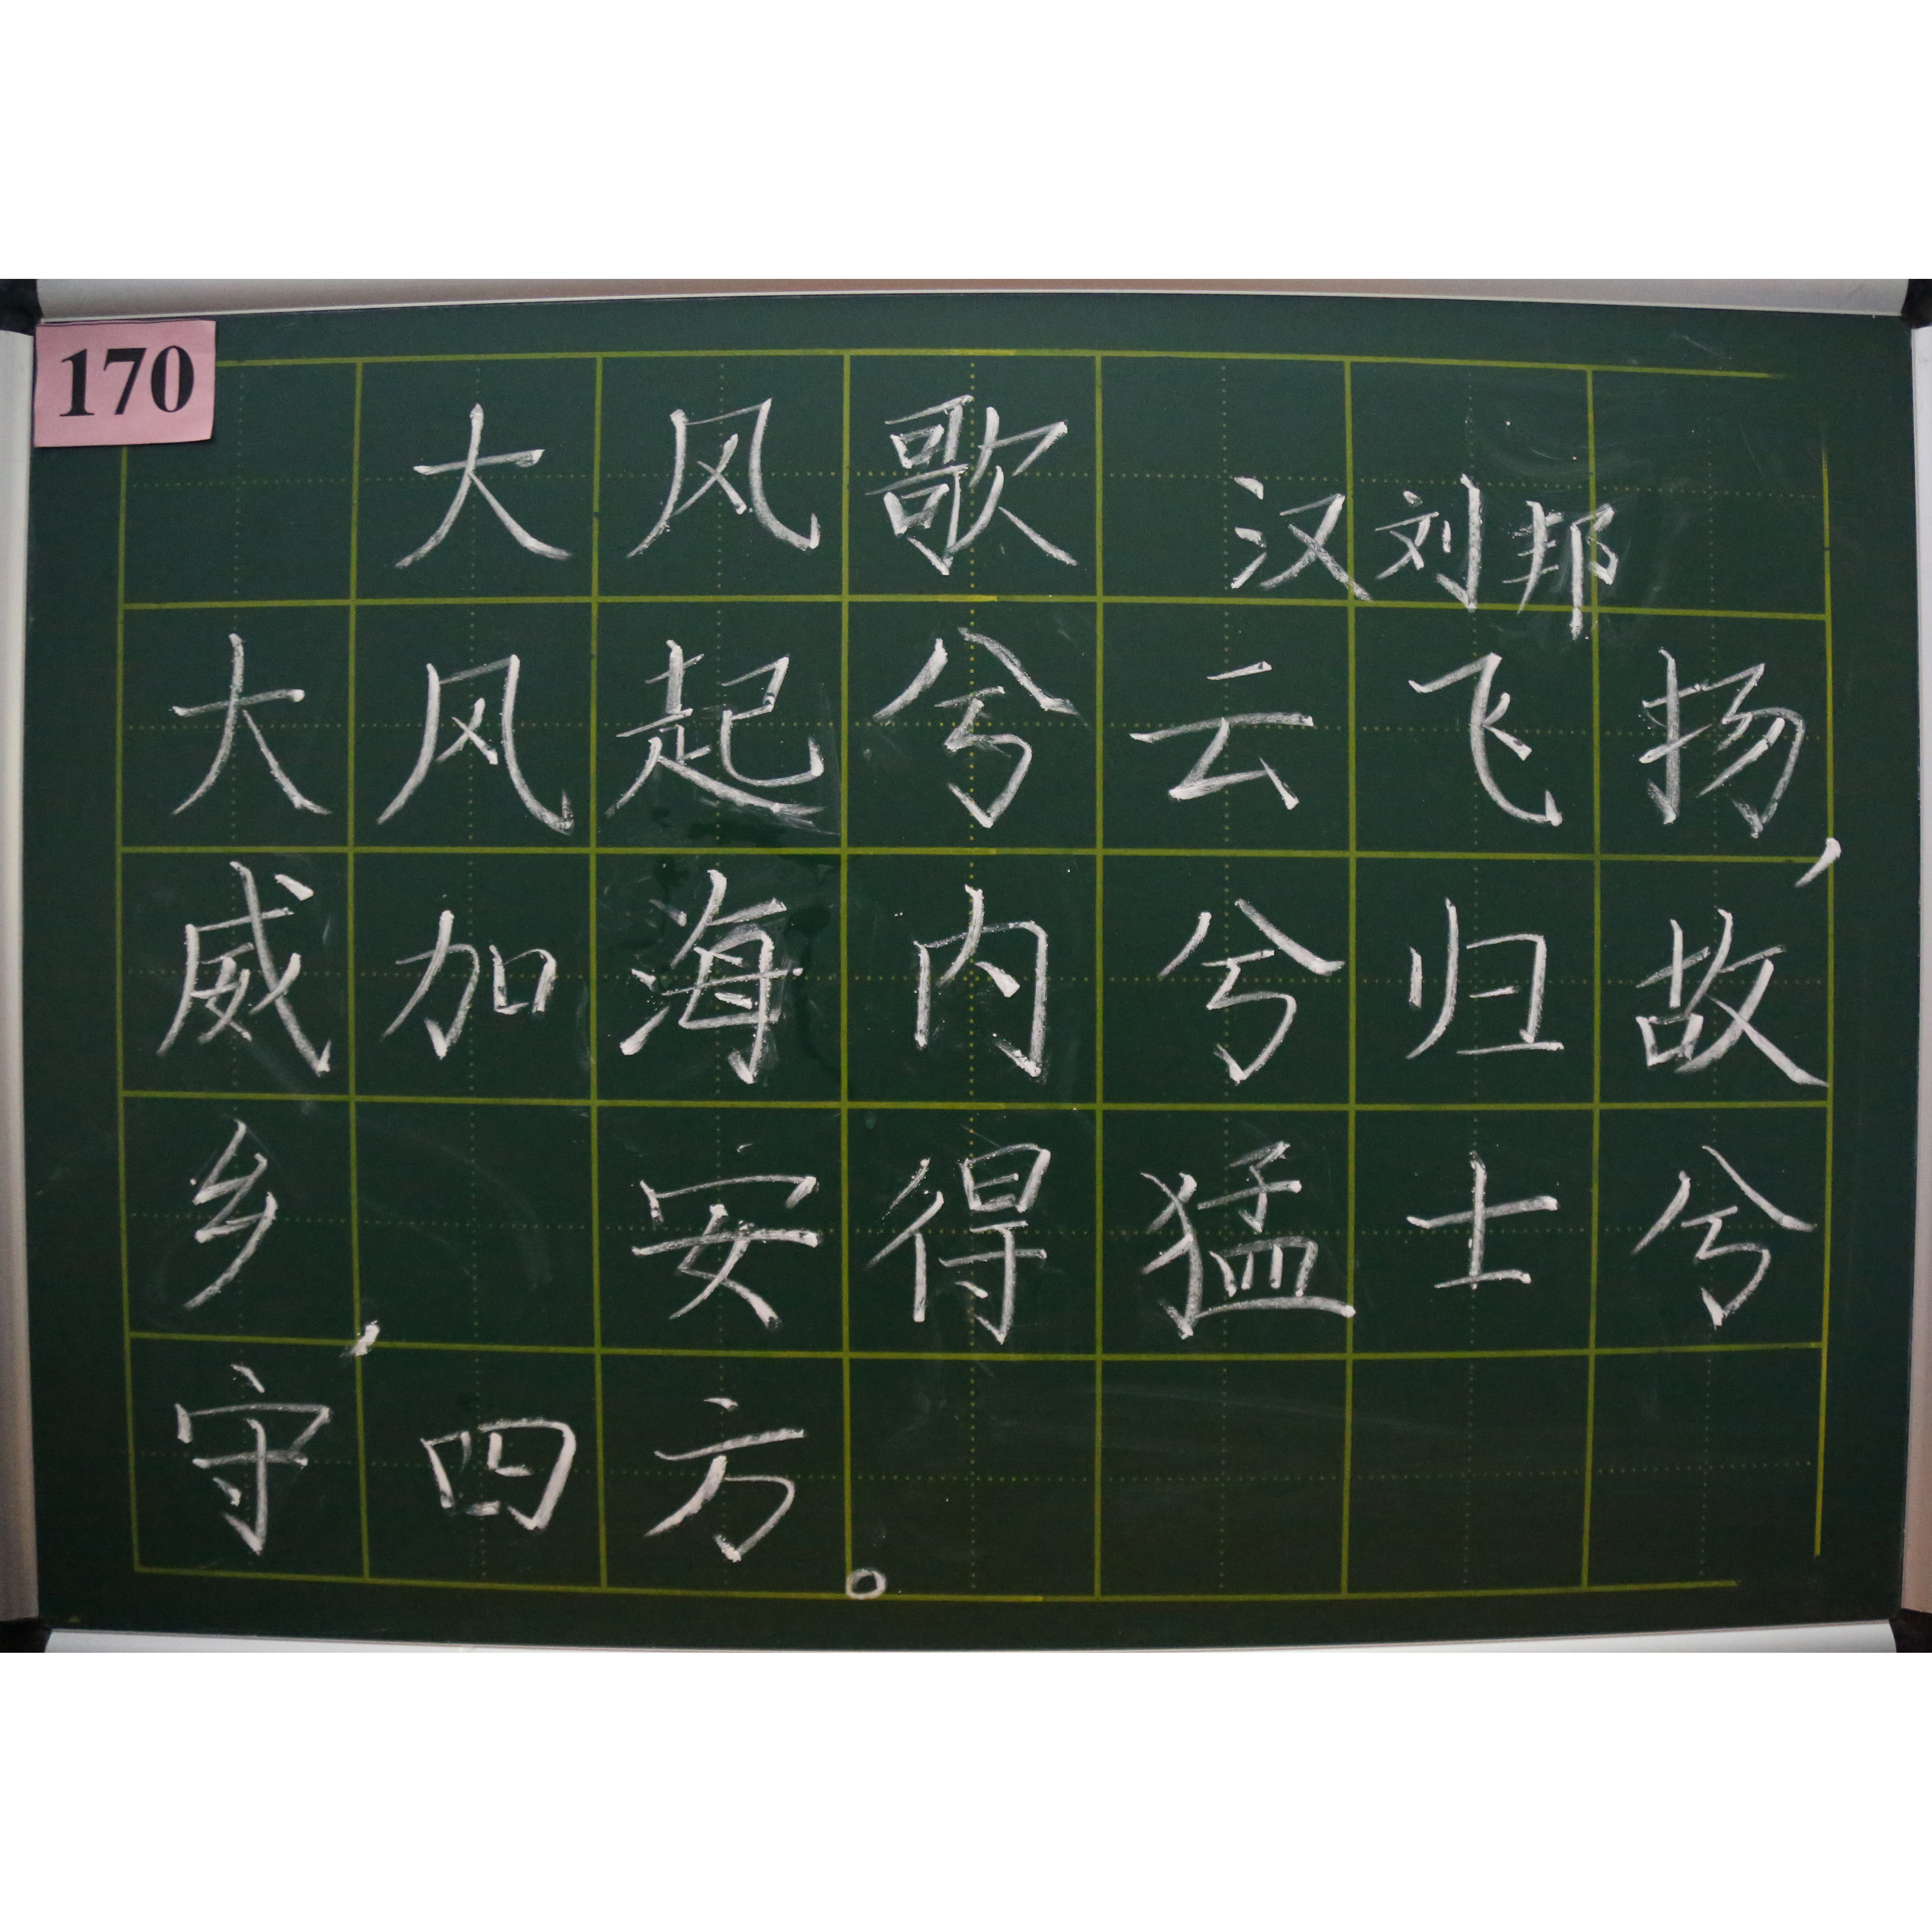 170
大风歌
汉刘邦
大风起兮云飞扬,
威加海内兮归故
乡, 安得猛士兮
守四方。